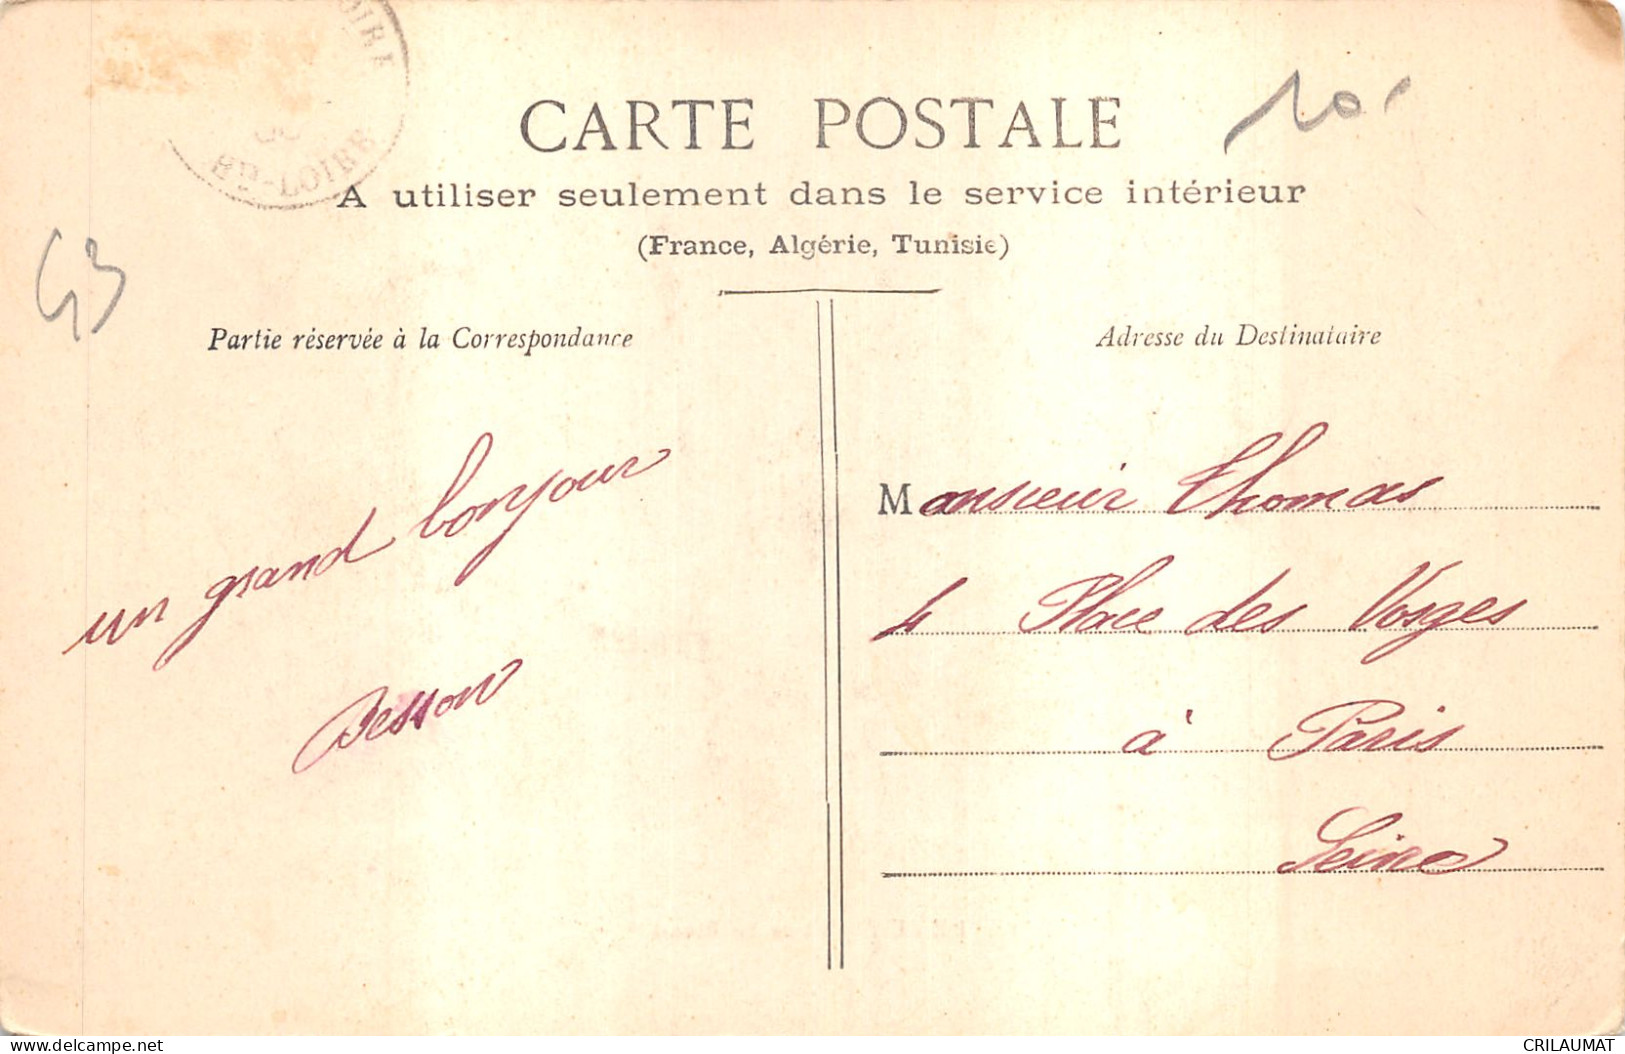 OIRE
Hte-LOIRE
CARTE POSTALE
10
A utiliser seulement dans le service intérieur
(France, Algérie, Tunisie)
43
Partie réservée à la Correspondance
Adresse du Destinataire
un grand bonjour
Besson
Monsieur Thomas
4 Place des Vosges
à Paris
Seine
www.delcampe.net
CRILAUMAT